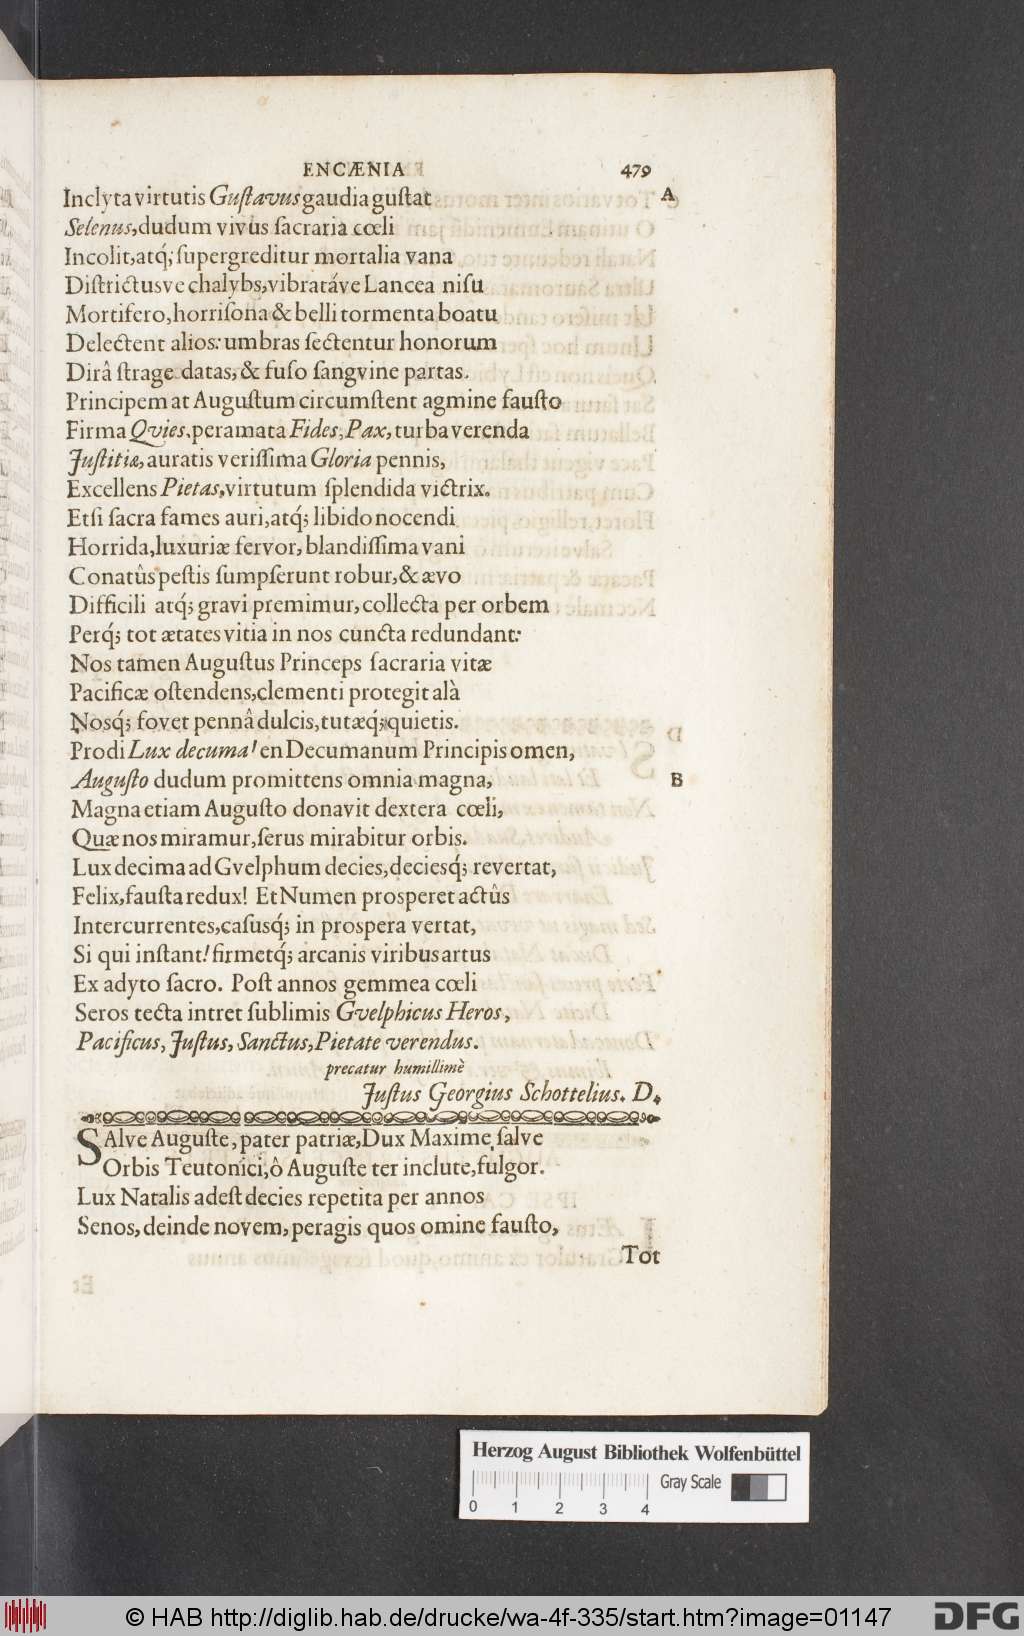 ENCÆNIA 479
Inclyta virtutis Guſtavus gaudia guſtat A
Selenus, dudum vivus ſacraria cœli
Incolit, atq́; ſupergreditur mortalia vana
Diſtrictusve chalybs, vibratáve Lancea niſu
Mortifero, horriſona & belli tormenta boatu
Delectent alios: umbras ſectentur honorum
Dirâ ſtrage datas, & fuſo ſangvine partas.
Principem at Auguſtum circumſtent agmine fauſto
Firma Qvies, peramata Fides, Pax, turba verenda
Juſtitiæ, auratis veriſſima Gloria pennis,
Excellens Pietas, virtutum ſplendida victrix.
Etſi ſacra fames auri, atq́; libido nocendi
Horrida, luxuriæ fervor, blandiſſima vani
Conatûs peſtis ſumpſerunt robur, & ævo
Difficili atq́; gravi premimur, collecta per orbem
Perq́; tot ætates vitia in nos cuncta redundant:
Nos tamen Auguſtus Princeps ſacraria vitæ
Pacificæ oſtendens, clementi protegit alà
Nosq́; fovet pennâ dulcis, tutæq́; quietis.
Prodi Lux decuma! en Decumanum Principis omen,
Auguſto dudum promittens omnia magna, B
Magna etiam Auguſto donavit dextera cœli,
Quæ nos miramur, ſerus mirabitur orbis.
Lux decima ad Gvelphum decies, deciesq́; revertat,
Felix, fauſta redux! Et Numen proſperet actûs
Intercurrentes, caſusq́; in proſpera vertat,
Si qui inſtant! firmetq́; arcanis viribus artus
Ex adyto ſacro. Poſt annos gemmea cœli
Seros tecta intret ſublimis Gvelphicus Heros,
Pacificus, Juſtus, Sanctus, Pietate verendus.
precatur humillimè
Juſtus Georgius Schottelius. D.
SAlve Auguſte, pater patriæ, Dux Maxime ſalve
Orbis Teutonici, ô Auguſte ter inclute, fulgor.
Lux Natalis adeſt decies repetita per annos
Senos, deinde novem, peragis quos omine fauſto,
Tot
Herzog August Bibliothek Wolfenbüttel
Gray Scale
0 1 2 3 4
© HAB http://diglib.hab.de/drucke/wa-4f-335/start.htm?image=01147 DFG